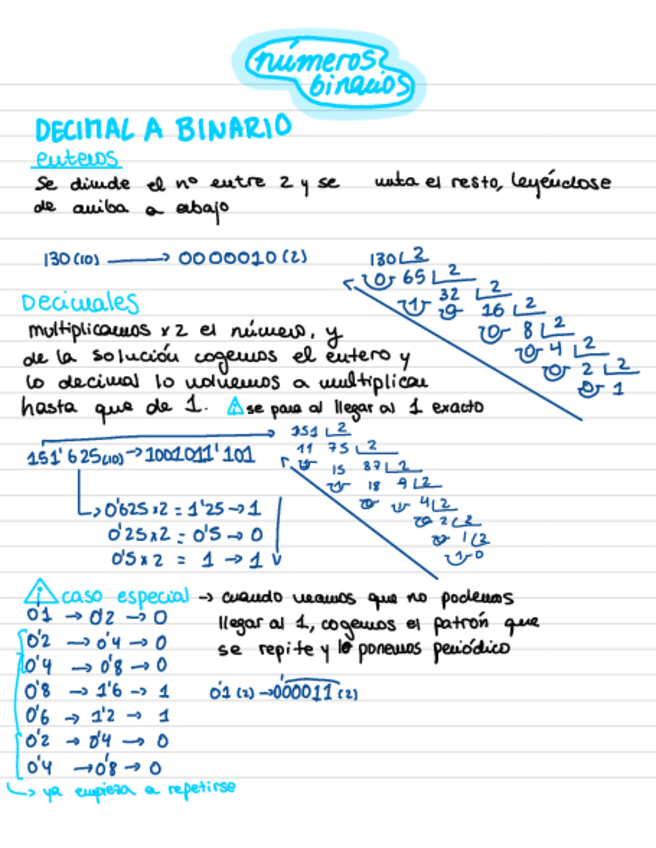 números
binarios
DECIMAL A BINARIO
enteros
Se divide el nº entre 2 y se anota el resto, leyéndose
de arriba a abajo
130 (10) → 0000010 (2)
130 2
0 65 2
1 32 2
0 16 2
0 8 2
0 4 2
0 2 2
0 1
Decimales
multiplicamos x2 el número, y
de la solución cogemos el entero y
lo decimal lo volvemos a multiplicar
hasta que de 1. se para al llegar al 1 exacto
151'625(10) → 1001011'101
151 2
11 75 2
1 15 37 2
1 18 2
0 4 2
0 2 2
1 2
1 0
0'625x2 = 1'25 → 1
0'25x2 = 0'5 → 0
0'5x2 = 1 → 1
caso especial → cuando veamos que no podemos
llegar al 1, cogemos el patrón que
se repite y lo ponemos periódico
0'1 (2) → 0'00011 (2)
0'1 → 0'2 → 0
0'2 → 0'4 → 0
0'4 → 0'8 → 0
0'8 → 1'6 → 1
0'6 → 1'2 → 1
0'2 → 0'4 → 0
0'4 → 0'8 → 0
ya empieza a repetirse